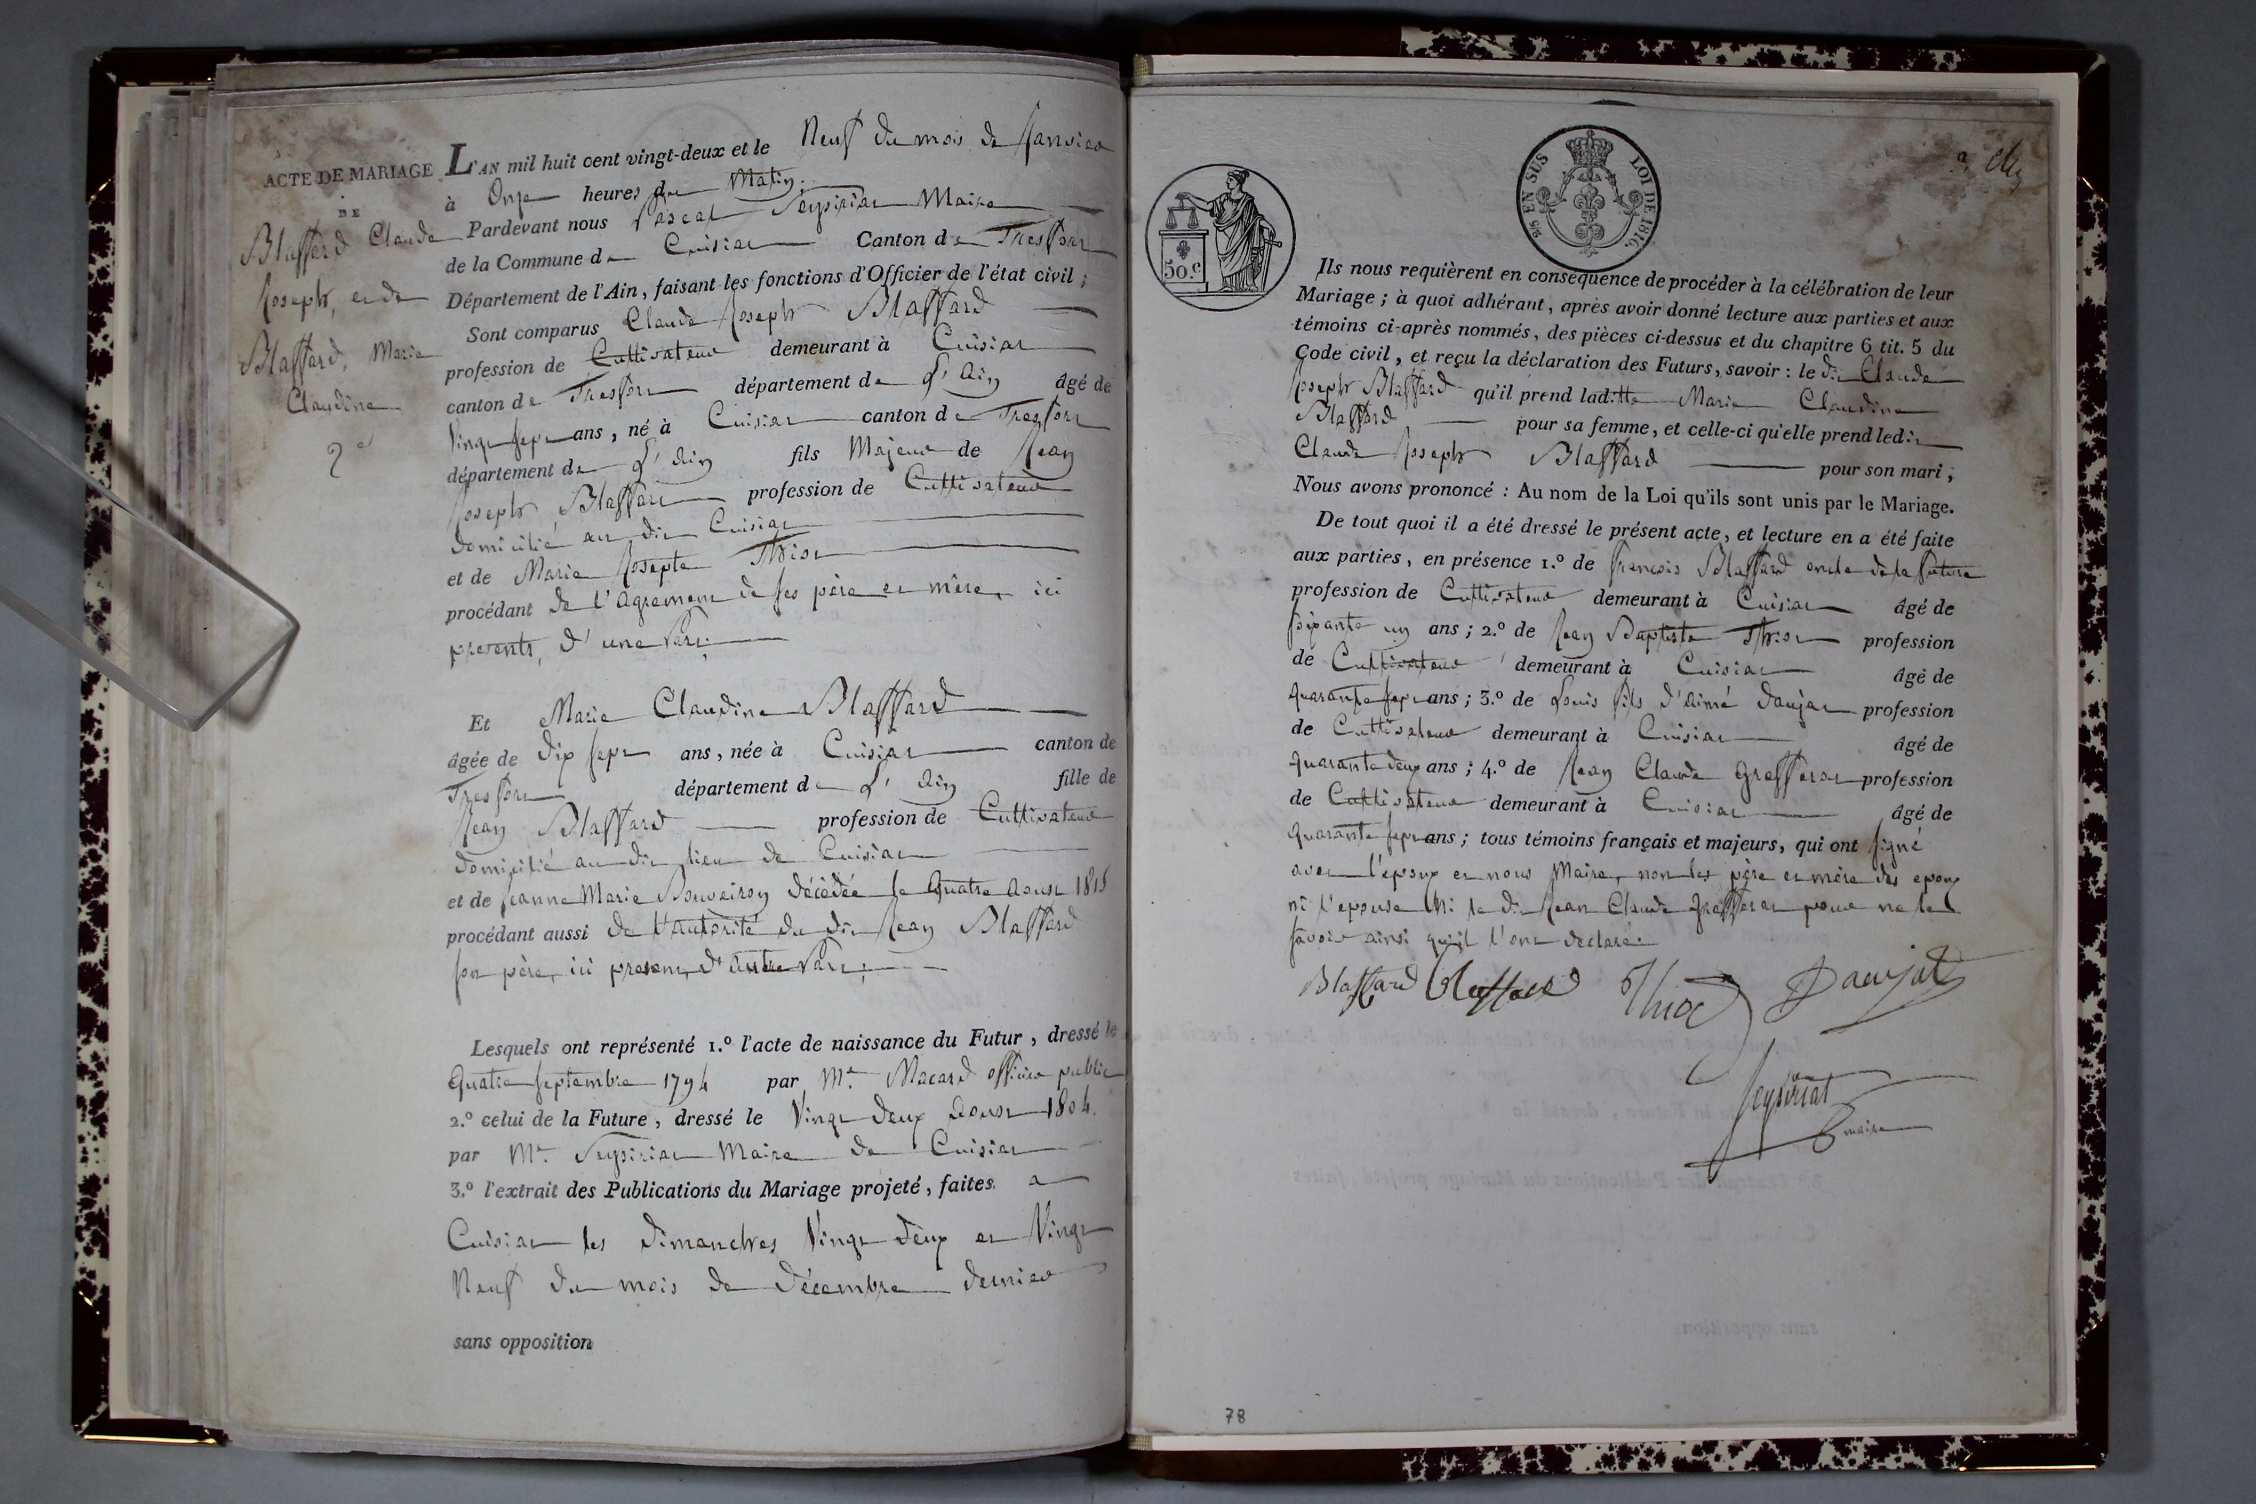 ACTE DE MARIAGE
DE
Blaffard Claude
Joseph, et de
Blaffard, Marie
Claudine
2e
L'AN mil huit cent vingt-deux et le Neuf du mois de Janvier
à Onze heures du Matin.
Pardevant nous Pascal Seysiriat Maire
de la Commune de Cuisiat Canton de Treffort
Département de l'Ain, faisant les fonctions d'Officier de l'état civil;
Sont comparus Claude Joseph Blaffard
profession de Cultivateur demeurant à Cuisiat
canton de Treffort département de L'Ain âgé de
Vingt sept ans, né à Cuisiat canton de Treffort
département de L'Ain fils Majeur de Jean
Joseph Blaffard profession de Cultivateur
domicilié au dit Cuisiat
et de Marie Josepte Thiot
procédant de l'agrement de ses père et mère, ici
presents, d'une part;
Et Marie Claudine Blaffard
âgée de dix sept ans, née à Cuisiat canton de
Treffort département de L'Ain fille de
Jean Blaffard profession de Cultivateur
domicilié au dit lieu de Cuisiat
et de Jeanne Marie Bouveiron décédée le quatre aoust 1815
procédant aussi de l'autorité du dit Jean Blaffard
son père, ici present, d'autre part;
Lesquels ont représenté 1.º l'acte de naissance du Futur, dressé le
quatre septembre 1794 par Mr. Macard officier public
2.º celui de la Future, dressé le Vingt deux aoust 1804.
par Mr. Seysiriat Maire de Cuisiat
3.º l'extrait des Publications du Mariage projeté, faites a
Cuisiat les dimanches Vingt deux et Vingt
Neuf du mois de décembre dernier
sans opposition
50.c
EN SUS
LOI DE 1816.
Ils nous requièrent en conséquence de procéder à la célébration de leur
Mariage; à quoi adhérant, après avoir donné lecture aux parties et aux
témoins ci-après nommés, des pièces ci-dessus et du chapitre 6 tit. 5 du
Code civil, et reçu la déclaration des Futurs, savoir: le dit Claude
Joseph Blaffard qu'il prend laditte Marie Claudine
Blaffard pour sa femme, et celle-ci qu'elle prend ledit
Claude Joseph Blaffard pour son mari;
Nous avons prononcé: Au nom de la Loi qu'ils sont unis par le Mariage.
De tout quoi il a été dressé le présent acte, et lecture en a été faite
aux parties, en présence 1.º de françois Blaffard oncle de la future
profession de Cultivateur demeurant à Cuisiat âgé de
soixante un ans; 2.º de Jean Baptiste Thiot profession
de Cultivateur demeurant à Cuisiat âgé de
quarante sept ans; 3.º de Louis fils d'aimé daujat profession
de Cultivateur demeurant à Cuisiat âgé de
quarante deux ans; 4.º de Jean Claude grefférat profession
de Cultivateur demeurant à Cuisiat âgé de
quarante sept ans; tous témoins français et majeurs, qui ont signé
avec l'époux et nous Maire, non les père et mère des epoux
ni l'epouse Ni le dit Jean Claude grefférat pour ne le
savoir ainsi qu'il l'ont declaré.
Blaffard Blaffard Thiot Daujat
Seysiriat
maire
78